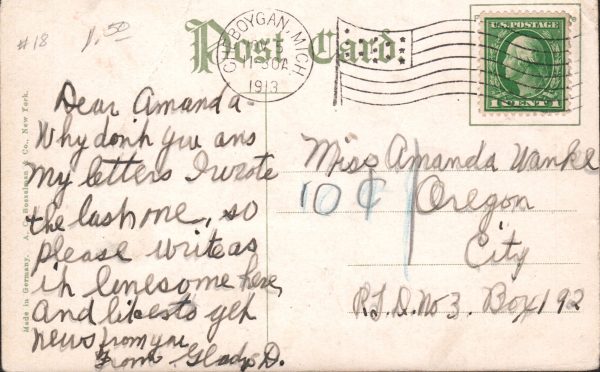 #18
1.50
Post Card
CHEBOYGAN, MICH
11-30A
1913
U.S. POSTAGE
1 CENT 1
Made in Germany. A. C. Bosselman & Co., New York.
Dear Amanda-
Why don't you ans
My letters I wrote
the last one, so
please write as
it lonesome here,
and likes to get
news from you
From Gladys D.
Miss Amanda Wanke
10¢ Oregon
City
R.F.D. No 3. Box 192